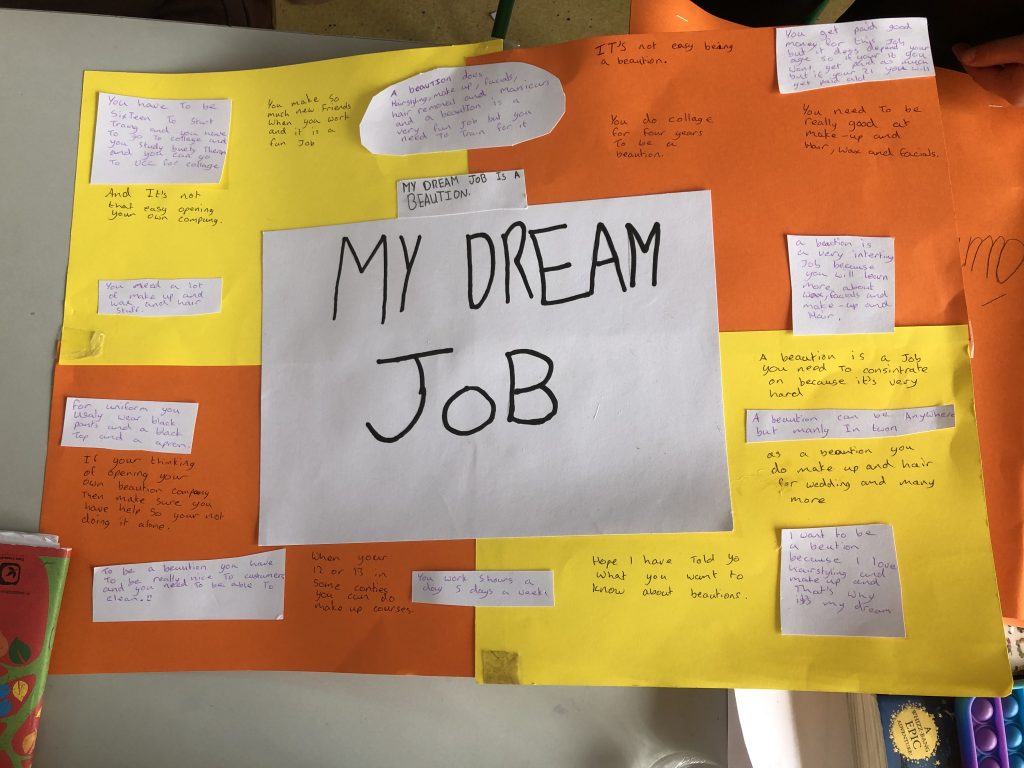 MY DREAM
JOB
MY DREAM JOB IS A
BEAUTION.
You have To be
SixTeen To STarT
Traing and you have
To go To collage and
you STudy buety Therapy
and you can go
To UCC for collage
You make So
much new Friends
When you work
and iT is a
fun Job
A BEAUTION does
Hairstyling, make up, facials,
hair removal and manicurs
and a beauTion is a
very fun Job buT you
need To Train for iT
IT's not easy being
a beaution.
You get paid good
money for this Job
but it does depend your
age so if your 17 you
wont get paid as much
but if your 21 you will
get paid alot
And IT's noT
thaT easy opening
Your own company.
You do collage
for four years
To be a
beaution.
You need To be
really good at
make-up and
Hair, wax and facials.
You need a loT
of make up and
wax and hair
sTuff.
a beaction is
a very interting
Job because
you will learn
more about
wax, facials and
make-up and
Hair.
for uniform you
Usaly wear black
pants and a black
Top and a apron.
A beaution is a Job
you need To consintrate
on because it's very
hard
A beaution can be Anywhere
but manly In town
If your thinking
of opening your
own beaution company
Then make sure you
have help So your not
doing it alone.
as a beaution you
do make up and hair
for wedding and many
more
To be a beaution you have
To be really nice To custumers
and you need To be able To
clean.!!
When your
12 or 13 in
Some conties
you can do
make up courses.
You work 5hours a
day 5 days a weeks
Hope I have Told yo
what you want to
know about beautions.
I want to be
a beution
because I love
Hairstyling and
make up and
That's why
it's my dream
A
WHIZZ-BANG
EPIC
ADVENTURE!